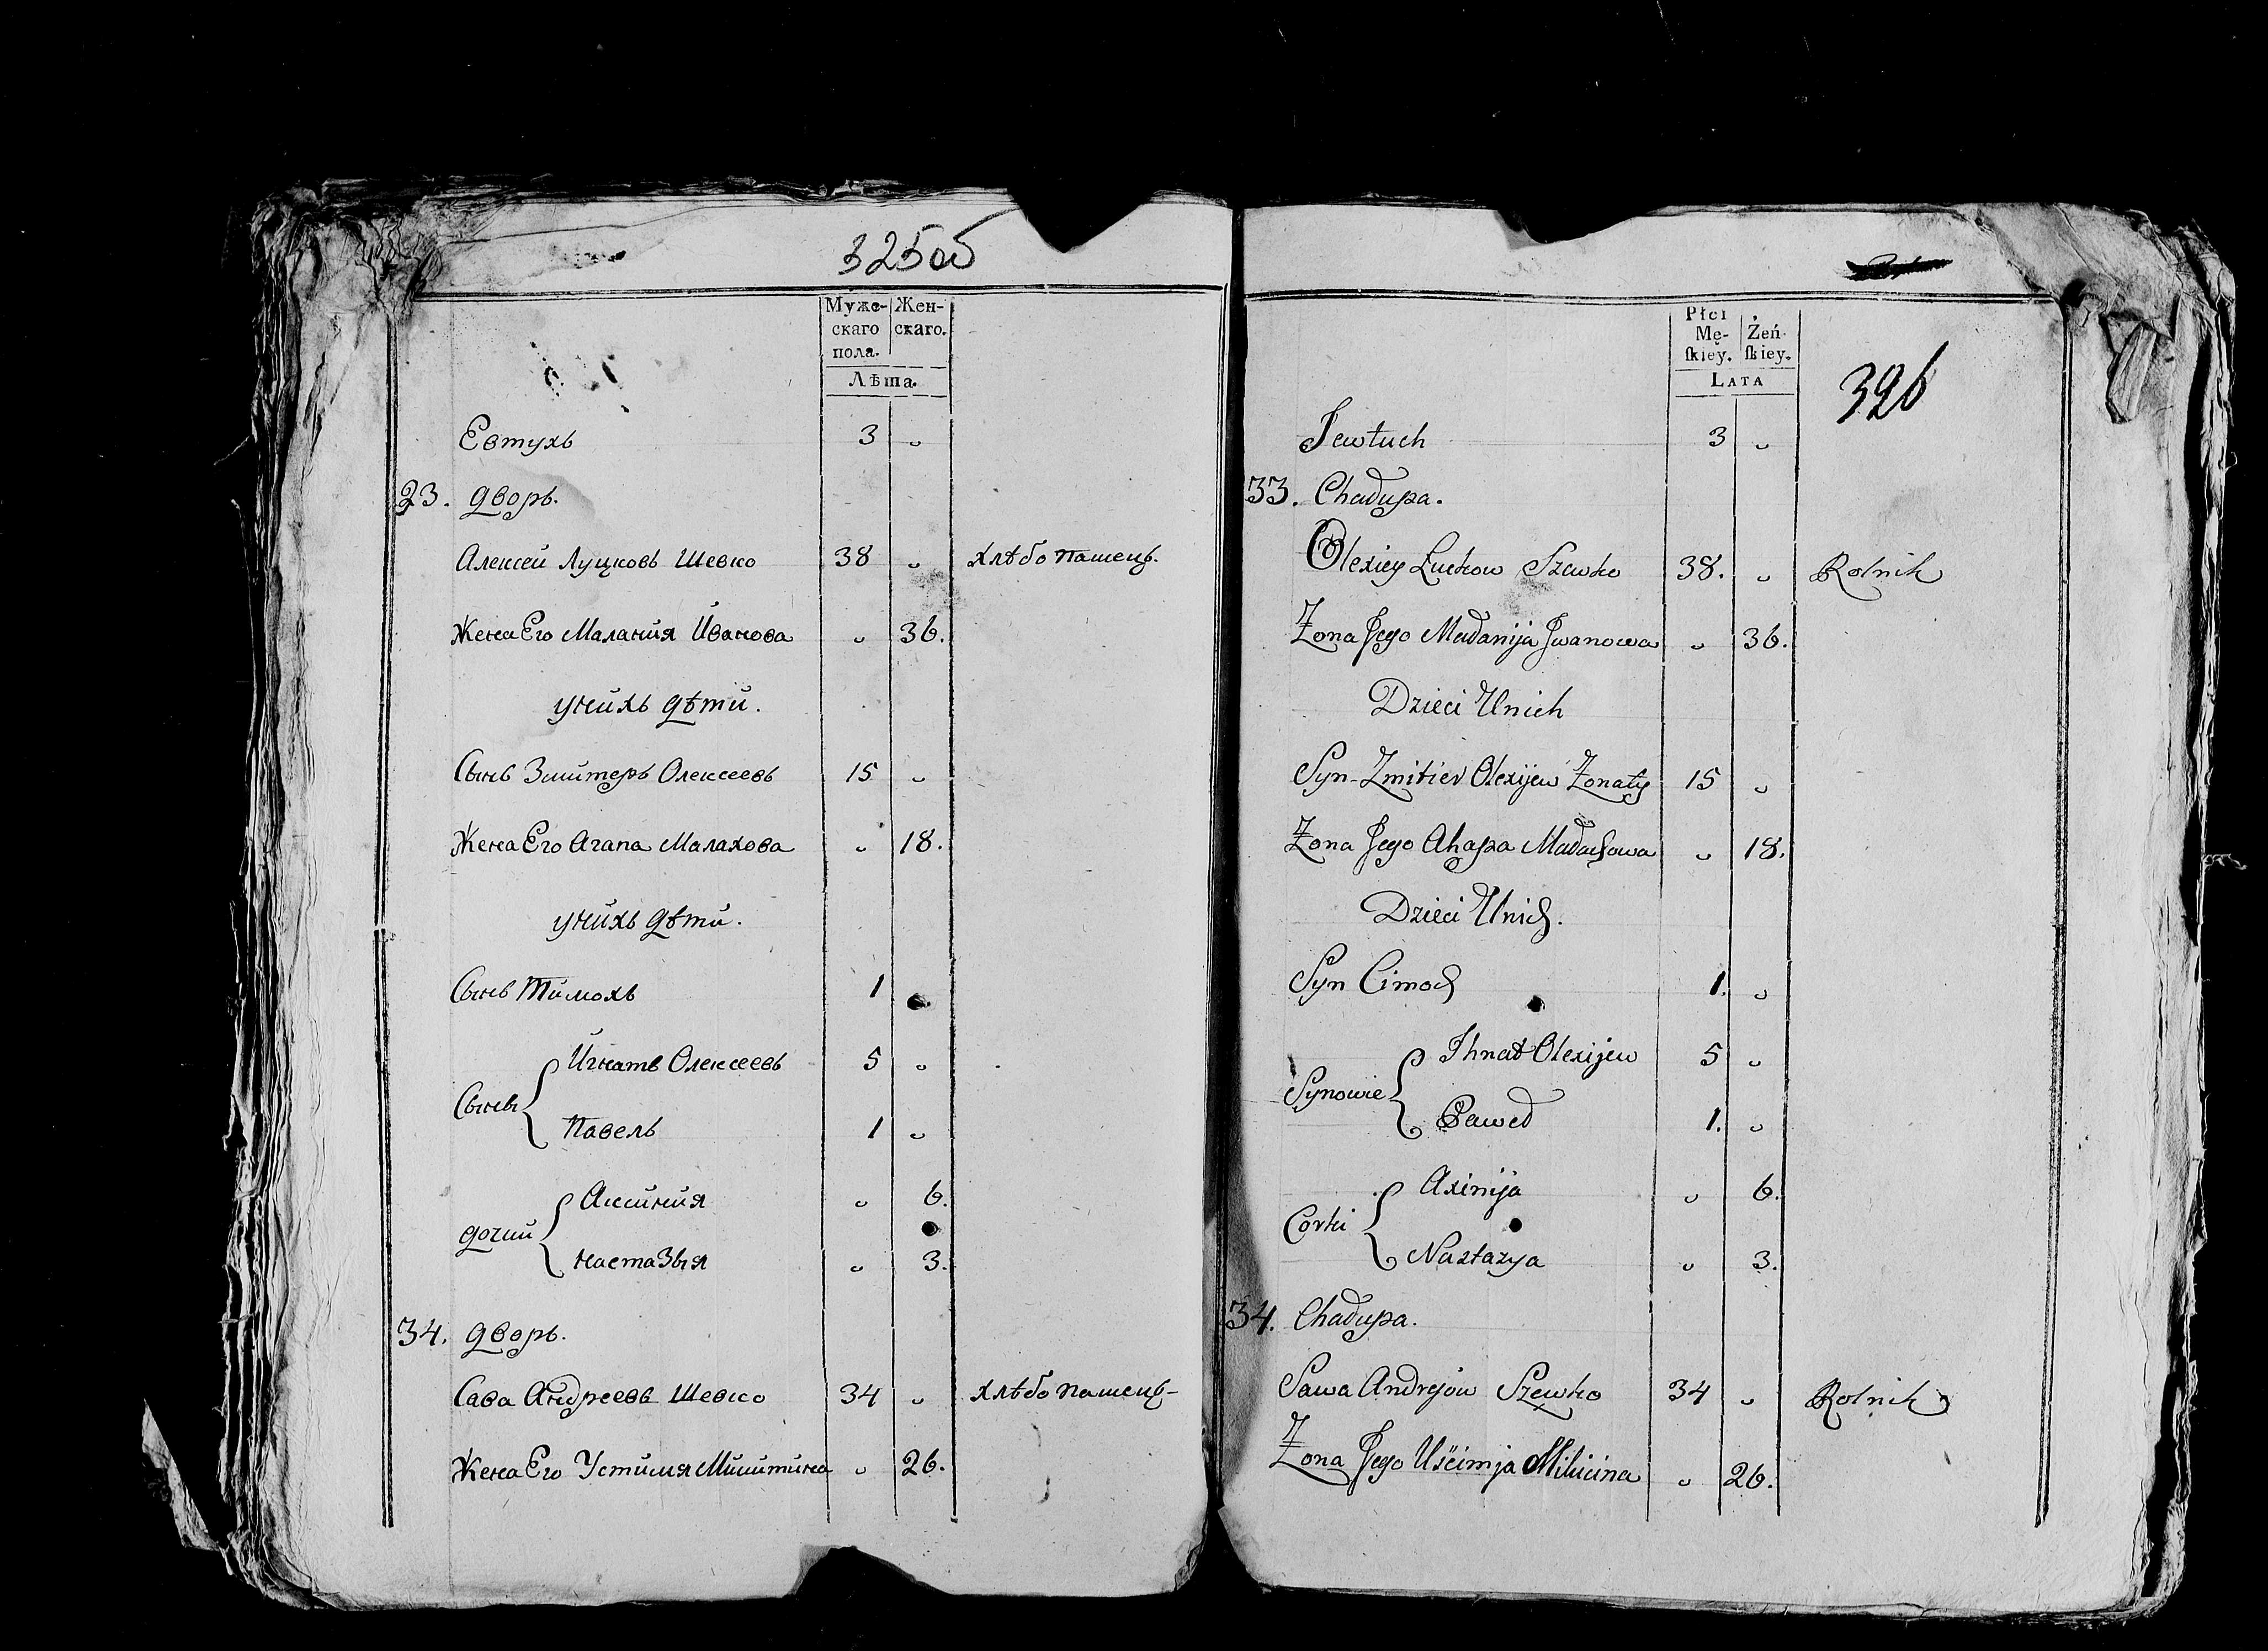 325об
Муже- Жен-
скаго скаго.
пола.
Лѣта.
Евтухъ 3 „
23. дворъ.
Алексей Луцковъ Шевко 38 „ хлѣбопашецъ.
Жена Его Малания Иванова „ 36.
унихъ дѣти.
Сынъ Змитеръ Олексеевъ 15 „
Жена Его Агапа Малахова „ 18.
унихъ дѣти.
Сынъ Тимохъ 1
Игнатъ Олексеевъ 5 „
Сыны
Павелъ 1 „
Аксиния „ 6.
дочии
настазыя „ 3.
34. дворъ.
Сава Андреевъ Шевко 34 „ хлѣбопашецъ-
Жена Его Устимя Микитина „ 26.
Płci
Mę- Żeń-
ſkiey. ſkiey.
LATA
326
Jewtuch 3 „
33. Chałupa.
Olexiey Luckow Szewko 38. „ Rolnik
Żona Jego Małanija Jwanowa „ 36.
Dzieci Unich
Syn Zmitier Olexijew Żonaty 15 „
Żona Jego Ahapa Małachowa „ 18.
Dzieci Unich.
Syn Cimoch 1. „
Ihnat Olexijew 5 „
Synowie
Paweł 1. „
Axinija „ 6.
Corki
Nastazya „ 3.
34. Chałupa.
Sawa Andrejow Szewko 34 „ Rolnik
Żona Jego Uścimja Mikicina „ 26.